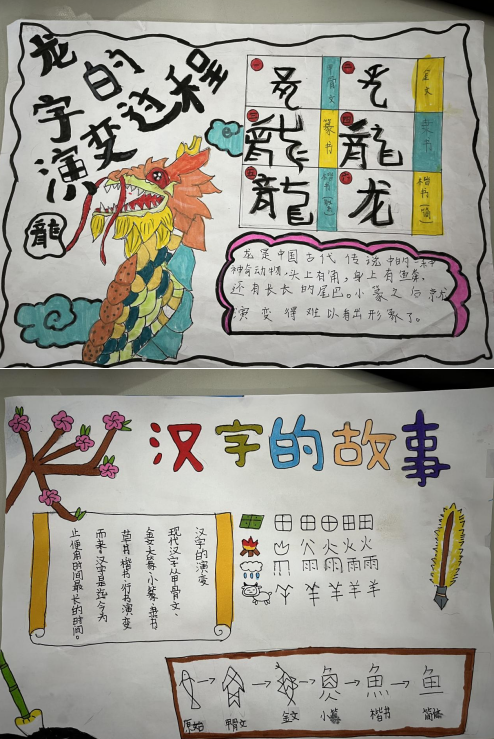 龙的
字演变过程
龍
一
甲骨文
二
龙
金文
三
龍
篆书
四
龍
隶书
五
龍
楷书(繁)
六
龙
楷书(简)
龙是中国古代传说中的一种
神奇动物,头上有角,身上有鱼鳞,
还有长长的尾巴。小篆之后就
演变得难以看出形象了。
汉字的故事
汉字的演变
现代汉字从甲骨文、
金文大篆、小篆、隶书
草书楷书行书演变
而来,汉字是迄今为
止使用时间最长的时间。
田 田 田 田 田
火 火 火
雨 雨 雨 雨
羊 羊 羊 羊
魚 魚 鱼
原始 甲骨文 金文 小篆 楷书 简体